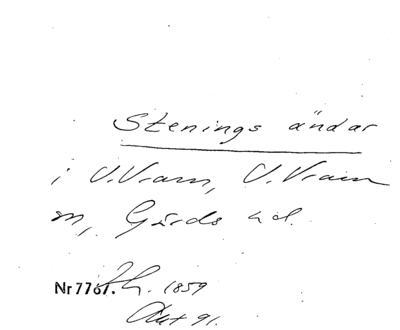 Stenings ändar
i V. Vram, V. Vram
m, Gärds hd.
Nr 7767. 1859
91.